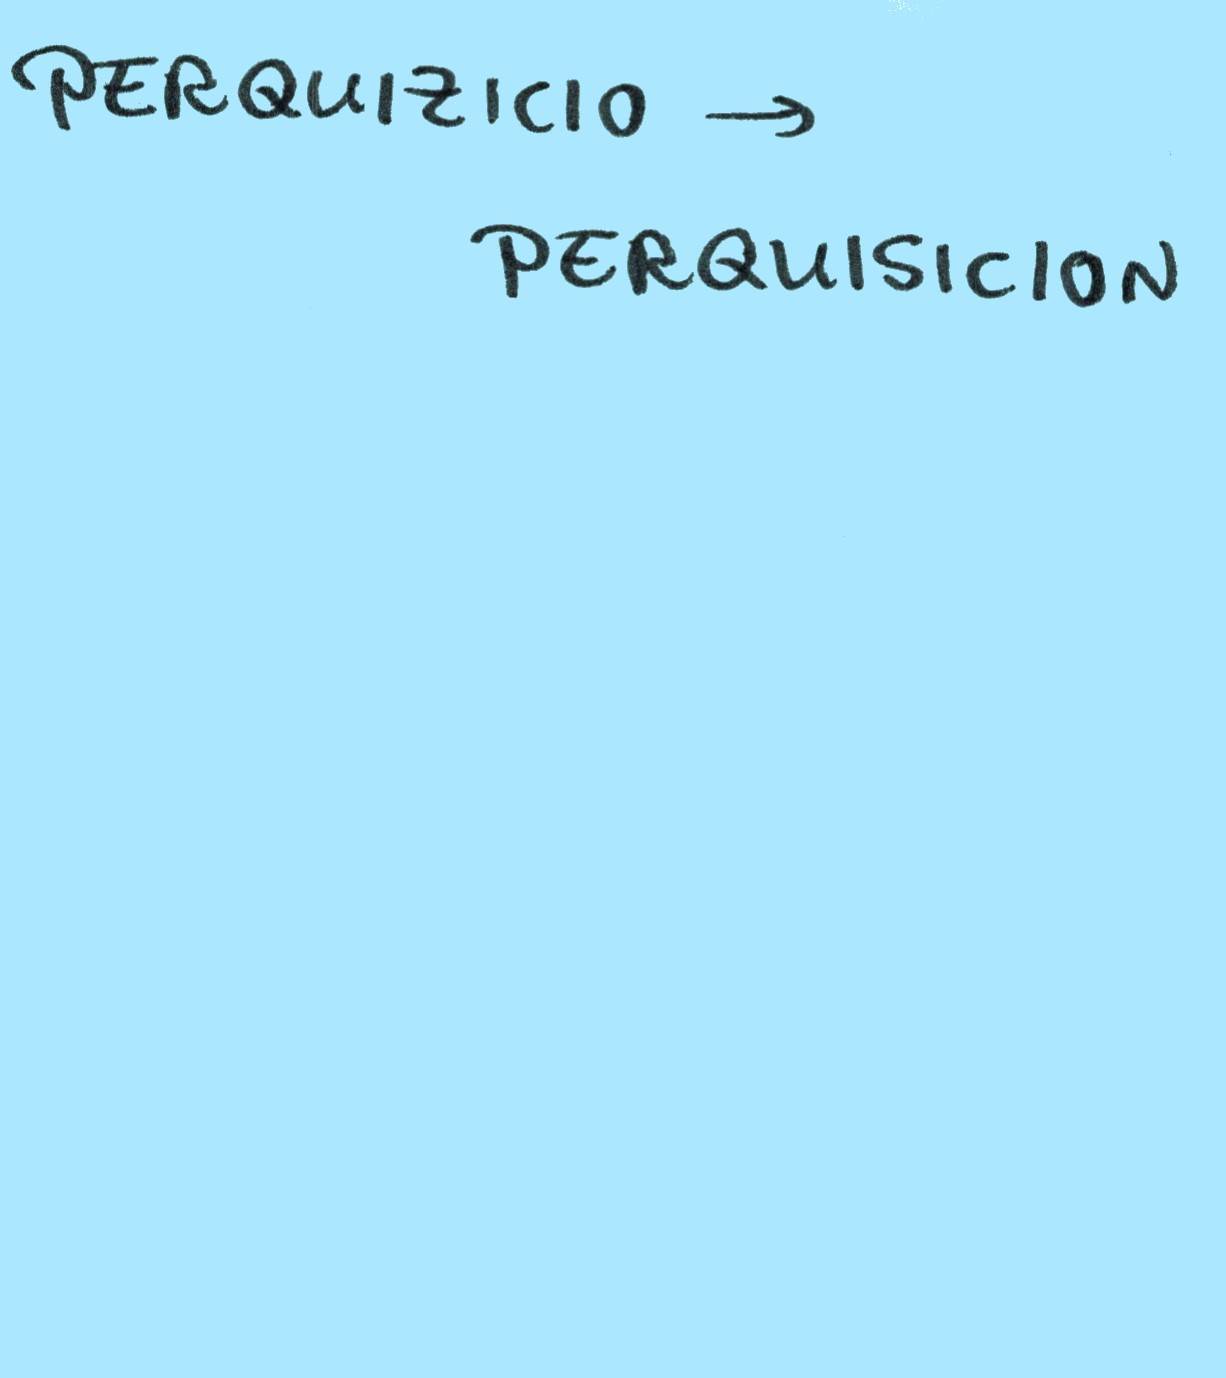 PERQUIZICIO →
PERQUISICION